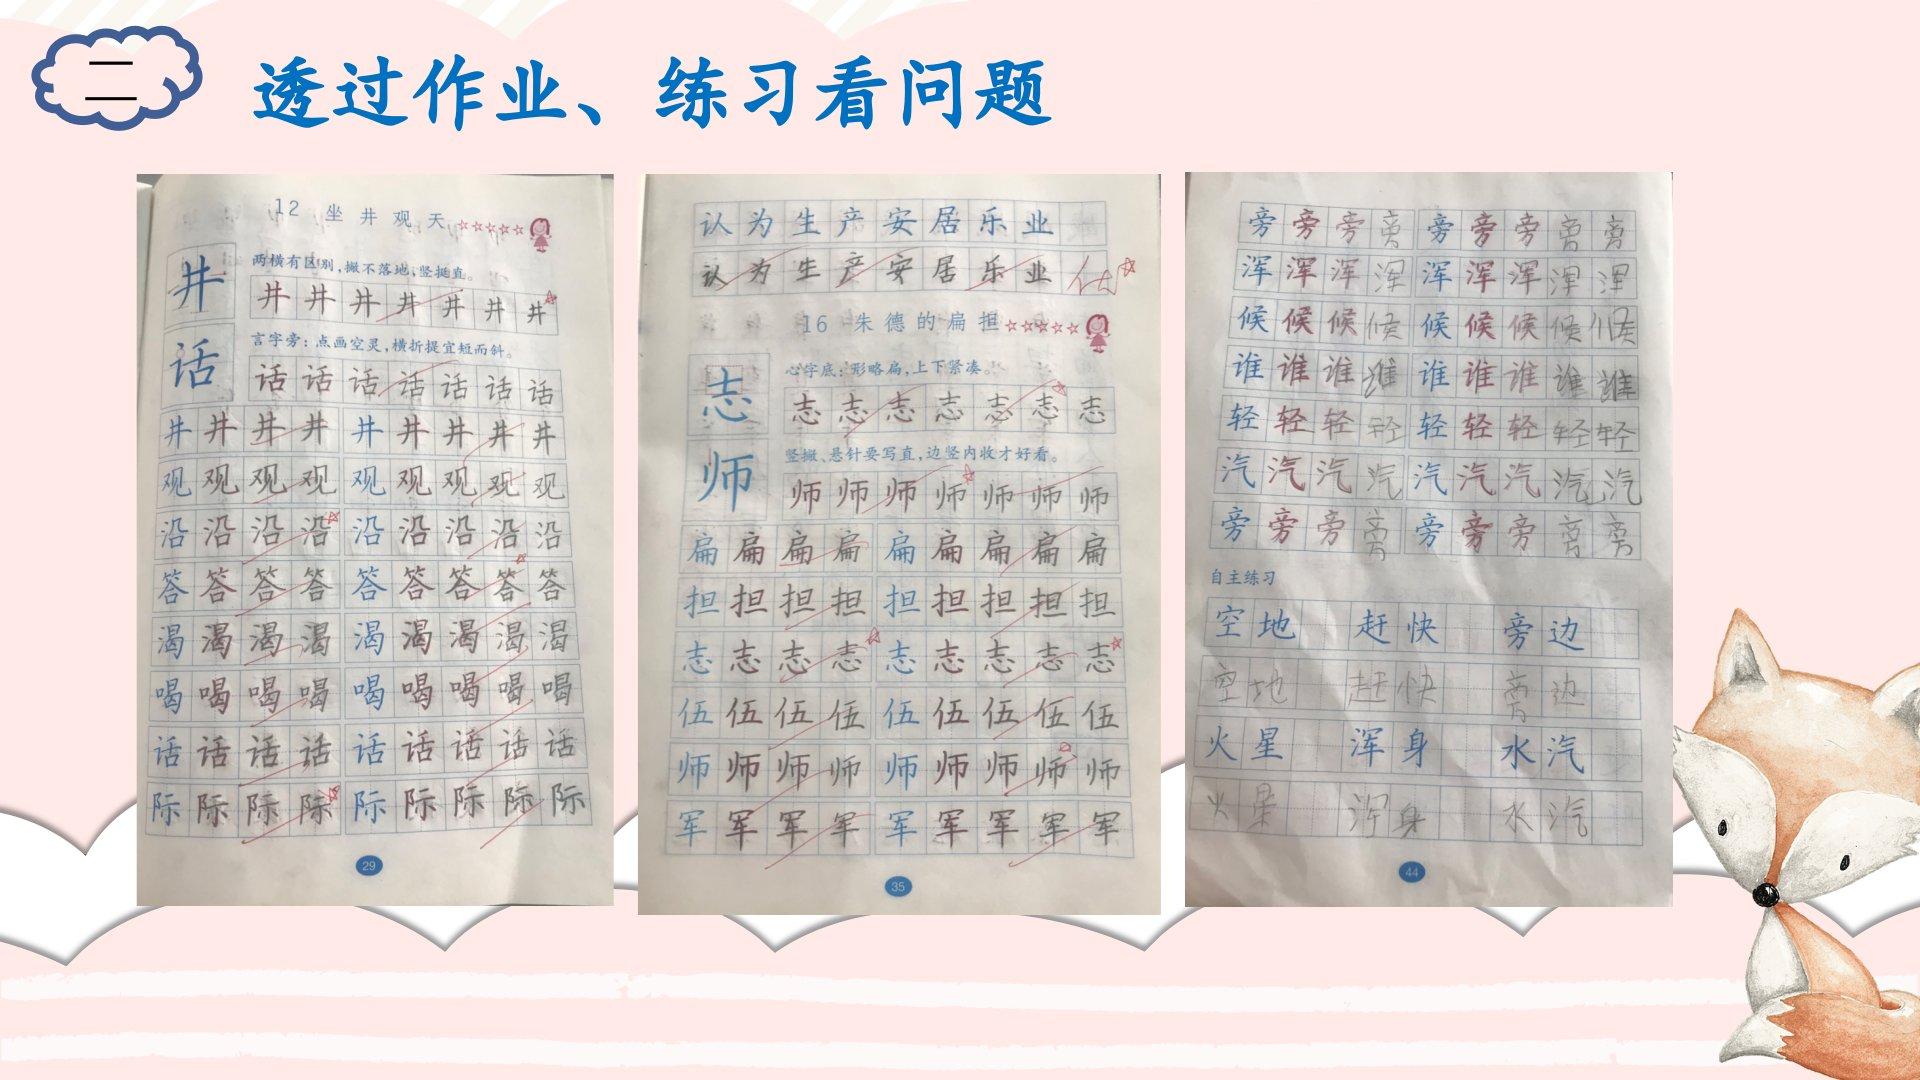 二
透过作业、练习看问题
12 坐井观天
井
两横有区别,撇不落地,竖挺直。
井井井井井井井
话
言字旁:点画空灵,横折提宜短而斜。
话话话话话话话
井井井井井井井井井
观观观观观观观观观
沿沿沿沿沿沿沿沿沿
答答答答答答答答答
渴渴渴渴渴渴渴渴渴
喝喝喝喝喝喝喝喝喝
话话话话话话话话话
际际际际际际际际际
29
认为生产安居乐业
认为生产安居乐业
16 朱德的扁担
志
心字底:形略扁,上下紧凑。
志志志志志志志
师
竖撇、悬针要写直,边竖内收才好看。
师师师师师师师
扁扁扁扁扁扁扁扁扁
担担担担担担担担担
志志志志志志志志志
伍伍伍伍伍伍伍伍伍
师师师师师师师师师
军军军军军军军军军
35
旁旁旁旁旁旁旁旁旁
浑浑浑浑浑浑浑浑浑
候候候候候候候候候
谁谁谁谁谁谁谁谁谁
轻轻轻轻轻轻轻轻轻
汽汽汽汽汽汽汽汽汽
旁旁旁旁旁旁旁旁旁
自主练习
空地 赶快 旁边
空地 赶快 旁边
火星 浑身 水汽
火星 浑身 水汽
44